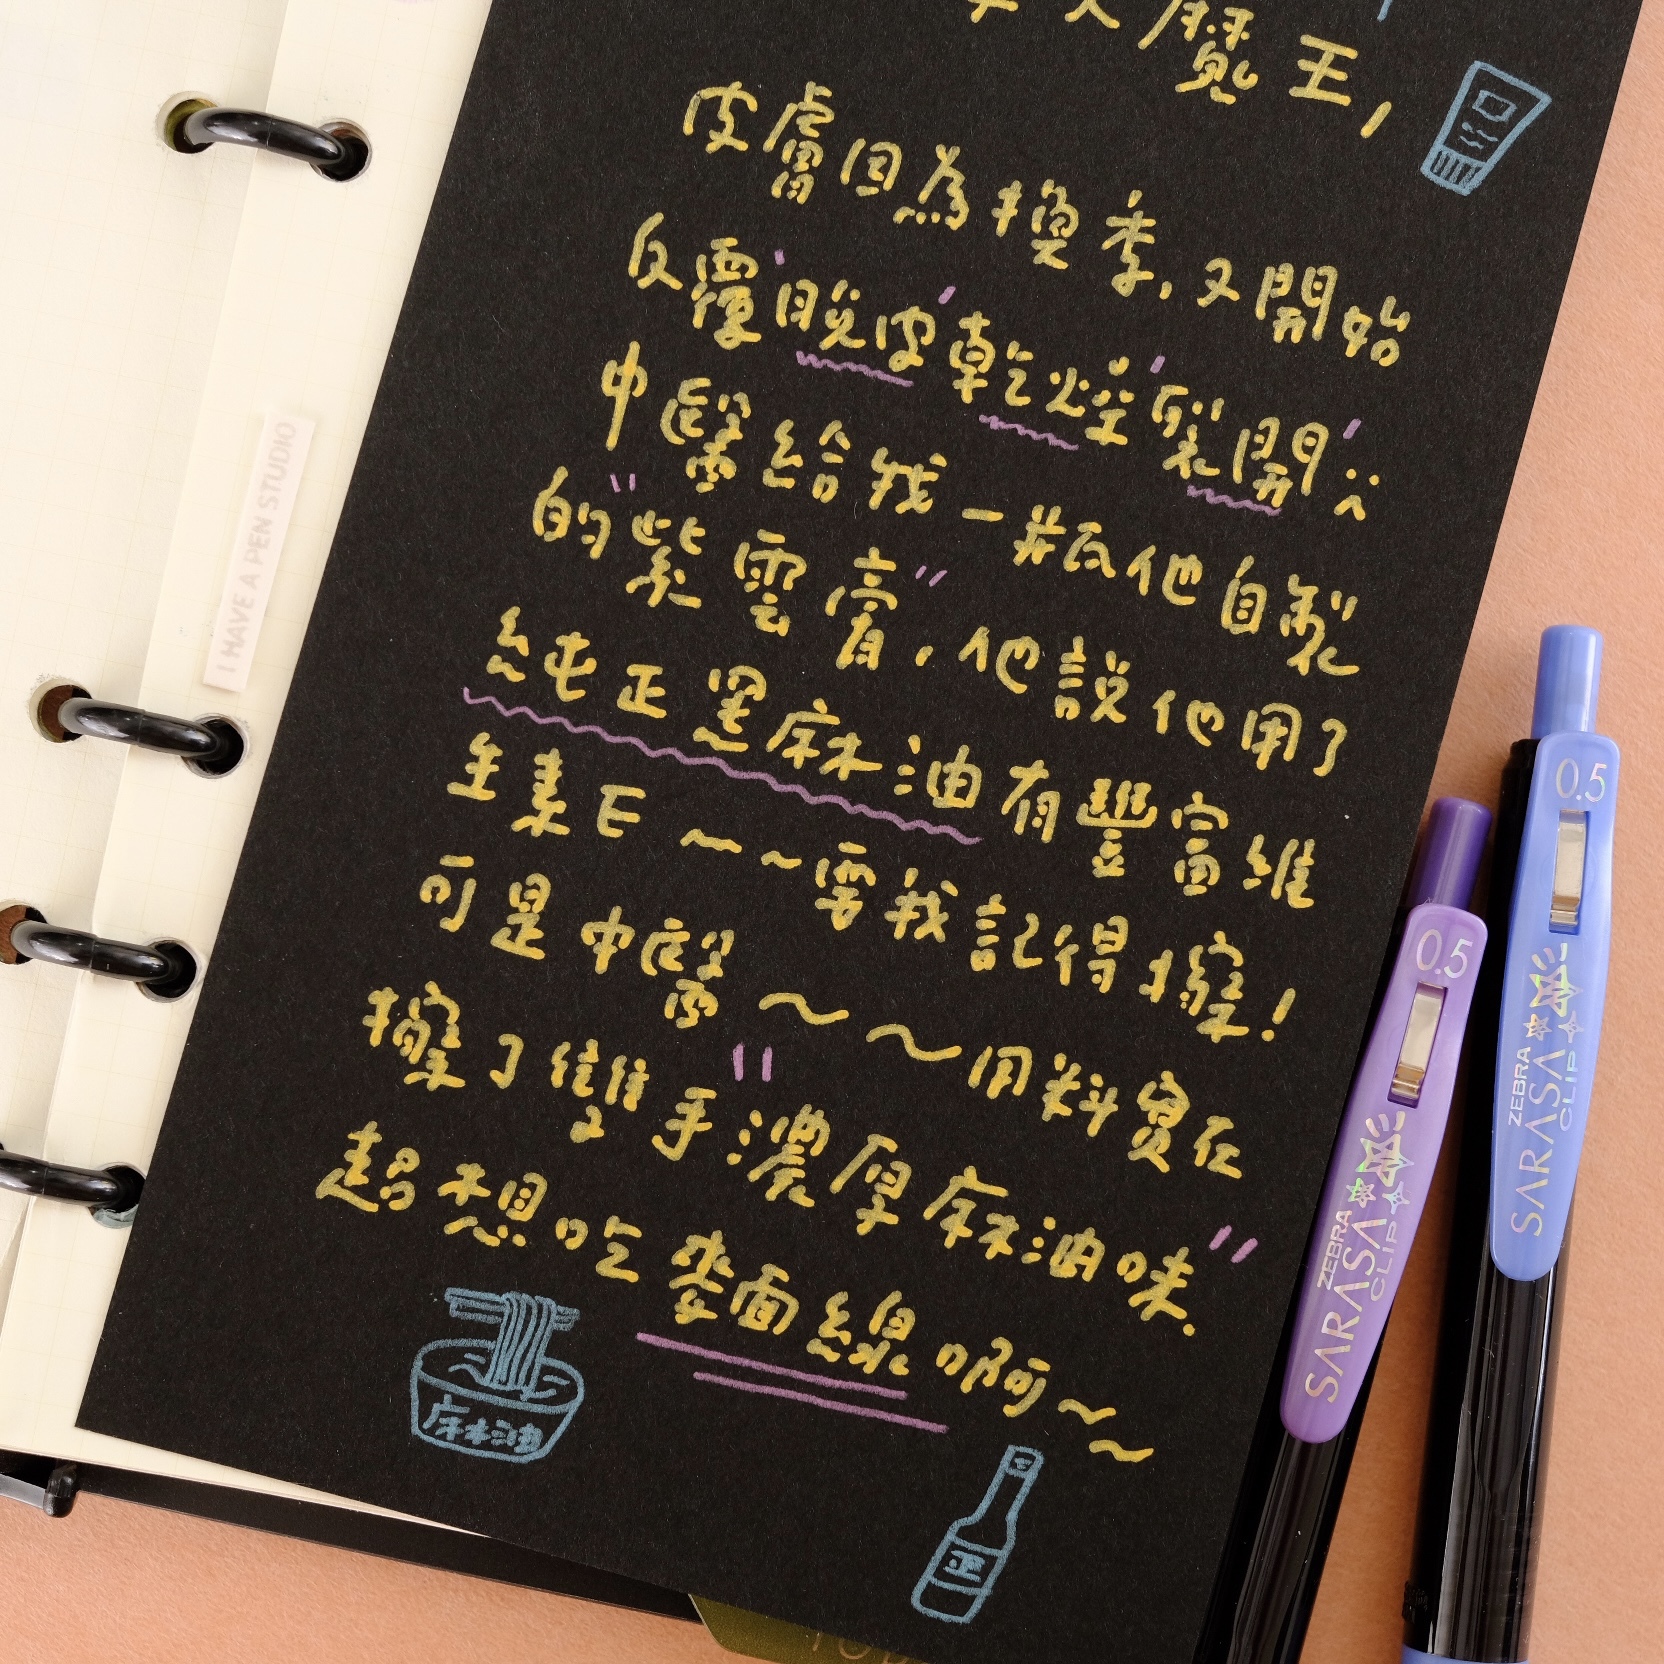 大魔王，
皮膚因為換季，又開始
反覆'脫皮'乾燥'裂開' :(
中醫給我一瓶他自製
的"紫雲膏"，他說他用了
純正黑麻油有豐富維
生素E～～要我記得擦！
可是中醫～～用料實在
擦了雙手"濃厚麻油味"。
超想吃麥面線啊～～
麻油
黑
I HAVE A PEN STUDIO
0.5
ZEBRA
SARASA
CLIP
0.5
ZEBRA
SARASA
CLIP